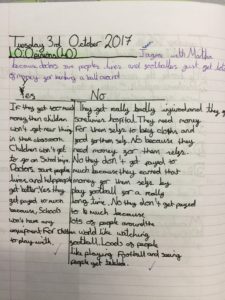 Tuesday 3rd October 2017
L.O: Opinions (LO) I agree with Martha
because doctors save peoples lives and footballers just get lots
of money for kicking a ball around
Yes No
If they get too much They get really badly injured and they go
money then children sometimes hospital. They need money
won't get new things For them selfs to buy cloths and
in their classroom. food for them selfs. No because they
Children won't get need money for them selfs.
to go on School trips. No they don't get payed to
Doctors save peoples much because they earned that
lives and help people money for them selfs by
get better. Yes they play football for a really
get payed to much long time. No they don't get payed
because, Schools to to much because
won't have any lots of people around the
equipment For children world like watching
to play with. football. Loads of people
like playing Football and seeing
people get tackled.